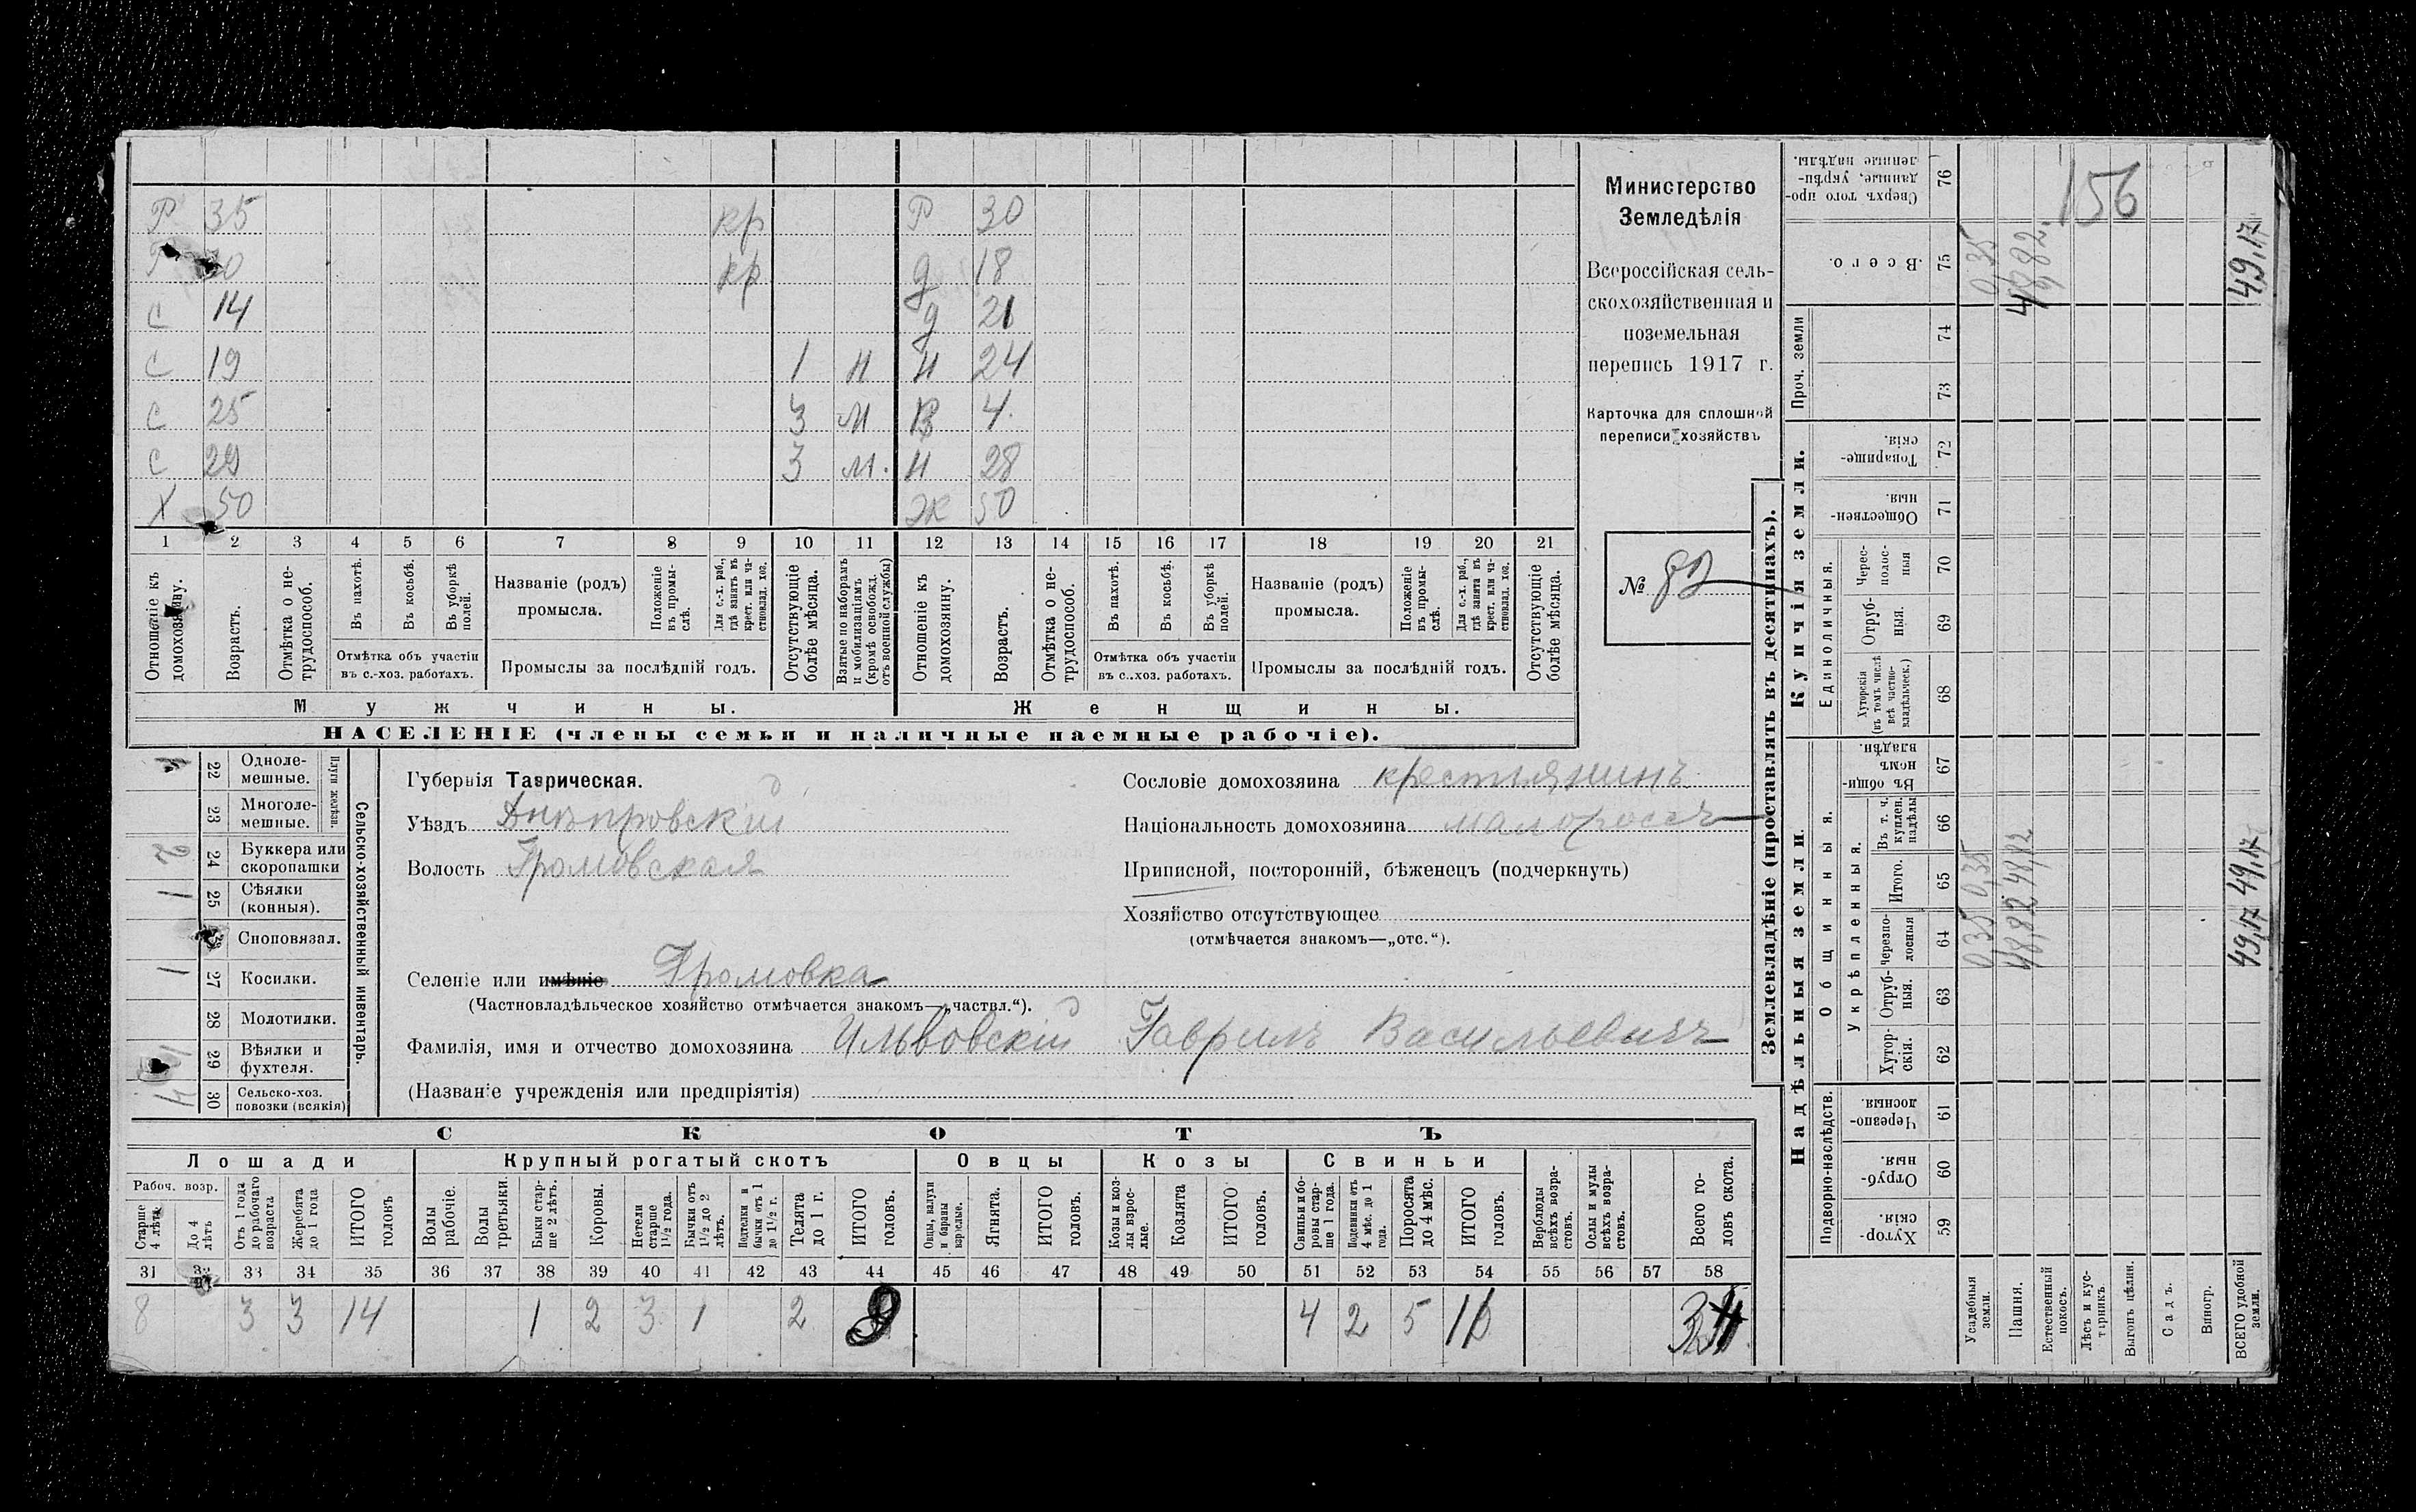 Р 35 кр Р 30
Р 30 кр д 18
С 14 д 21
С 19 1 н н 24
С 25 3 м В 4
С 29 3 м. н 28
Х 50 эк 50
1 2 3 4 5 6 7 8 9 10 11 12 13 14 15 16 17 18 19 20 21
Отношеніе къ домохозяину.
Возрастъ.
Отмѣтка о нетрудоспособ.
Въ пахотѣ.
Въ косьбѣ.
Въ уборкѣ полей.
Отмѣтка объ участіи въ с.-хоз. работахъ.
Названіе (родъ) промысла.
Положеніе въ промыслѣ.
Для с.-х. раб., гдѣ занятъ въ крест. или частновлад. хоз.
Промыслы за послѣдній годъ.
Отсутствующіе болѣе мѣсяца.
Взятые по наборамъ и мобилизаціямъ (кромѣ освобожд. отъ военной службы)
Отношеніе къ домохозяину.
Возрастъ.
Отмѣтка о нетрудоспособ.
Въ пахотѣ.
Въ косьбѣ.
Въ уборкѣ полей.
Отмѣтка объ участіи въ с.-хоз. работахъ.
Названіе (родъ) промысла.
Положеніе въ промыслѣ.
Для с.-х. раб., гдѣ занятъ въ крест. или частновлад. хоз.
Промыслы за послѣдній годъ.
Отсутствующіе болѣе мѣсяца.
Мужчины. Женщины.
НАСЕЛЕНІЕ (члены семьи и наличные наемные рабочіе).
Министерство
Земледѣлія
Всероссійская сель-
скохозяйственная и
поземельная
перепись 1917 г.
Карточка для сплошной
переписи хозяйствъ
№ 82
Сельско-хозяйственный инвентарь.
Плуги желѣзн.
22 Одноле-
мешные.
23 Многоле-
мешные.
2 24 Буккера или
скоропашки
1 25 Сѣялки
(конныя).
Сноповязал.
1 27 Косилки.
28 Молотилки.
1 29 Вѣялки и
фухтеля.
4 30 Сельско-хоз.
повозки (всякія)
Губернія Таврическая.
Уѣздъ Днѣпровскій
Волость Громовская
Селеніе или имѣніе Громовка
(Частновладѣльческое хозяйство отмѣчается знакомъ—„частвл.“).
Фамилія, имя и отчество домохозяина Ильвовскій Гаврилъ Васильевичъ
(Названіе учрежденія или предпріятія)
Сословіе домохозяина крестьянинъ
Національность домохозяина малороссъ
Приписной, посторонній, бѣженецъ (подчеркнуть)
Хозяйство отсутствующее
(отмѣчается знакомъ—„отс.“).
СКОТЪ
Лошади Крупный рогатый скотъ Овцы Козы Свиньи
Рабоч. возр.
Старше 4 лѣтъ
До 4 лѣтъ
Отъ 1 года до рабочаго возраста
Жеребята до 1 года
ИТОГО головъ
Волы рабочіе.
Волы третьяки.
Быки старше 2 лѣтъ.
Коровы.
Нетели старше 1½ года.
Бычки отъ 1½ до 2 лѣтъ.
Подтелки и бычки отъ 1 до 1½ г.
Телята до 1 г.
ИТОГО головъ.
Овцы, валухи и бараны взрослые.
Ягнята.
ИТОГО головъ.
Козы и козлы взрослые.
Козлята
ИТОГО головъ.
Свиньи и боровы старше 1 года.
Подсвинки отъ 4 мѣс. до 1 года.
Поросята до 4 мѣс.
ИТОГО головъ.
Верблюды всѣхъ возрастовъ.
Ослы и мулы всѣхъ возрастовъ.
Всего головъ скота.
31 32 33 34 35 36 37 38 39 40 41 42 43 44 45 46 47 48 49 50 51 52 53 54 55 56 57 58
8 3 3 14 1 2 3 1 2 9 4 2 5 11
Землевладѣніе (проставлять въ десятинахъ).
Надѣльныя земли
Купчія земли.
Подворно-наслѣдств.
Общинныя.
Укрѣпленныя.
Единоличныя.
Проч. земли
Сверхъ того проданные, укрѣпленные надѣлы. 76 156
Всего. 75 0,35 48,82 49,17
74
73
Товарищескія. 72
Общественныя. 71
Чересполосныя 70
Отрубныя. 69
Хуторскія (въ томъ числѣ всѣ частновладѣльческ.) 68
Въ общиномъ владѣн. 67
Въ т. ч. куплен. надѣлы 66
Итого. 65 0,35 48,82 49,17
Черезполосныя 64 0,35 48,82 49,17
Отрубныя. 63
Хуторскія. 62
Черезполосныя 61
Отрубныя. 60
Хуторскія. 59
Усадебныя земли.
Пашня.
Естественный покосъ.
Лѣсъ и кустарникъ.
Выгонъ цѣлин.
Садъ.
Виногр.
ВСЕГО удобной земли.